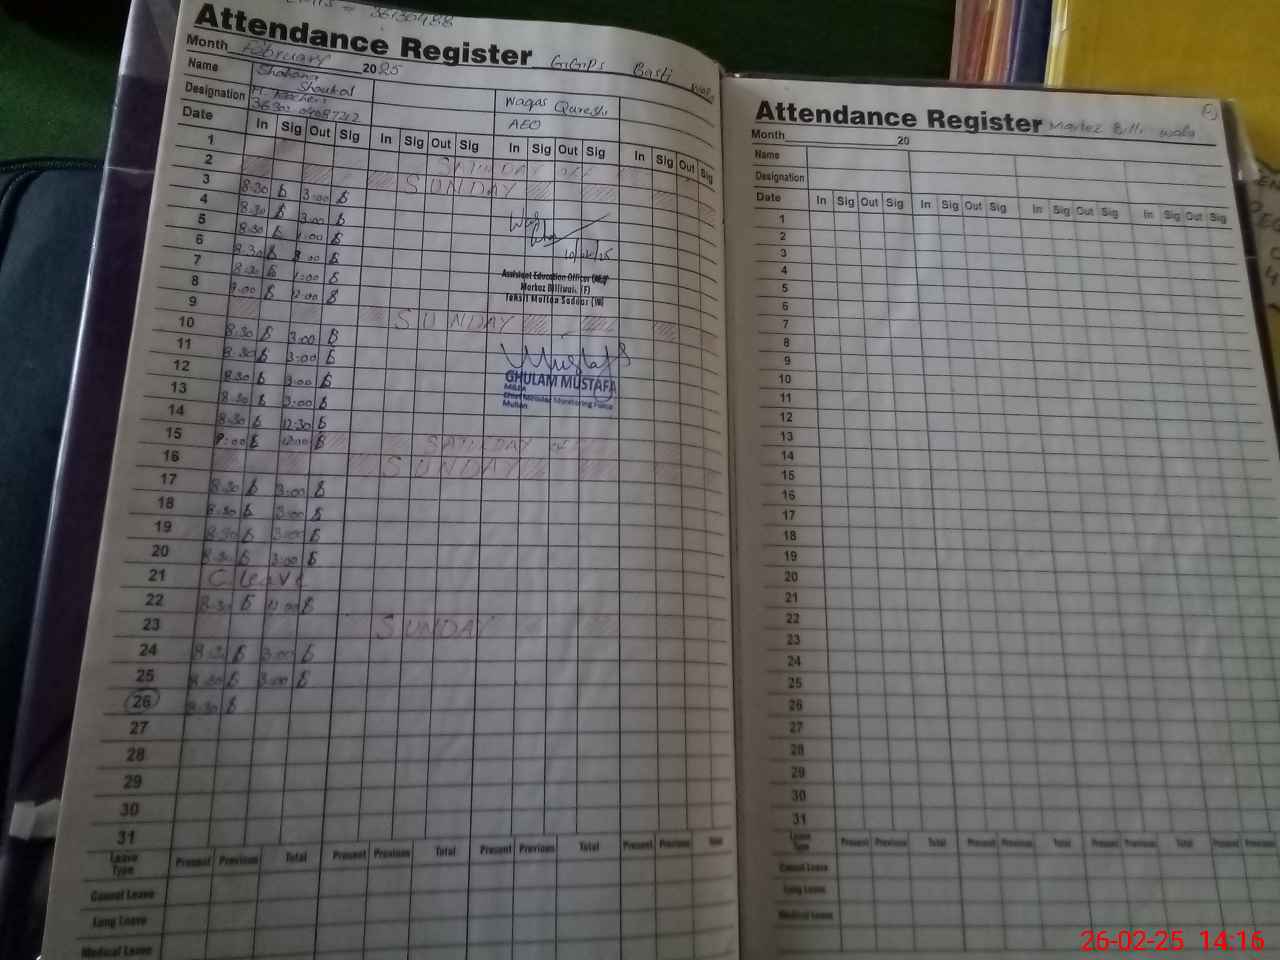 Attendance Register GGPS Basti
Month February 2025
Name Shabana Shoukat Waqas Qureshi
Designation H. Teacher AEO
Date In Sig Out Sig In Sig Out Sig In Sig Out Sig In Sig Out Sig
1 SATURDAY
2 SUNDAY
3 8:30 3:00
4 8:30 3:00
5 8:30
6 8:30
7 8:30 1:00
8 9:00 12:00
10/02/25
Assistant Education Officer
Markaz Billiwala (F)
Tehsil Multan Saddar (W)
9 SUNDAY
10 8:30 3:00
11 8:30 3:00
12 8:30 3:00
13 8:30 3:00
14 8:30 12:30
15 9:00 12:00 SATURDAY
GHULAM MUSTAFA
MEA
Chief Minister Monitoring Force
Multan
16 SUNDAY
17 8:30 3:00
18 8:30 3:00
19 8:30 3:00
20 8:30 3:00
21 C leave
22 8:30
23 SUNDAY
24 8:30 3:00
25 8:30 3:00
26 8:30
27
28
29
30
31
Leave Type Present Previous Total Present Previous Total Present Previous Total Present Previous
Casual Leave
Long Leave
Medical Leave
Attendance Register Markaz Billi wala
Month 20
Name
Designation
Date In Sig Out Sig In Sig Out Sig In Sig Out Sig In Sig Out Sig
1
2
3
4
5
6
7
8
9
10
11
12
13
14
15
16
17
18
19
20
21
22
23
24
25
26
27
28
29
30
31
Leave Type Present Previous Total Present Previous Total Present Previous Total Present Previous
Casual Leave
Long Leave
Medical Leave
26-02-25 14:16